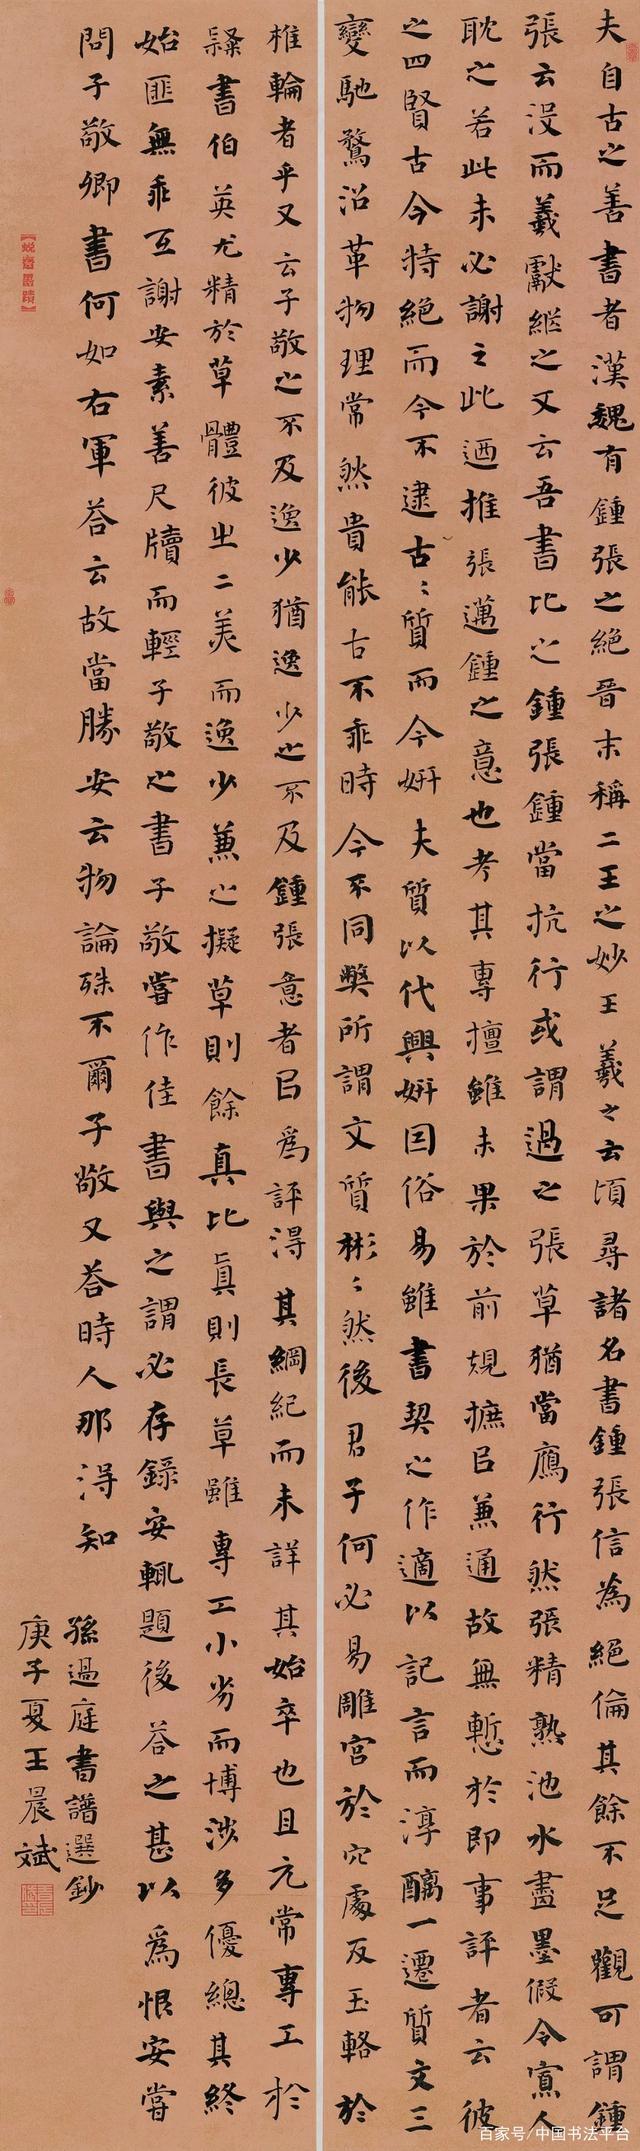 夫自古之善書者漢魏有鍾張之絕晉末稱二王之妙王羲之云頃尋諸名書鍾張信為絕倫其餘不足觀可謂鍾
張云沒而羲獻繼之又云吾書比之鍾張鍾當抗行或謂過之張草猶當鴈行然張精熟池水盡墨假令寡人
耽之若此未必謝之此迺推張邁鍾之意也考其專擅雖未果於前規摭㠯兼通故無慙於即事評者云彼
之四賢古今特絕而今不逮古〻質而今妍夫質以代興妍因俗易雖書契之作適以記言而淳醨一遷質文三
變馳騖沿革物理常然貴能古不乖時今不同弊所謂文質彬〻然後君子何必易雕宮於穴處反玉輅於
椎輪者乎又云子敬之不及逸少猶逸少之不及鍾張意者㠯為評得其綱紀而未詳其始卒也且元常專工於
隸書伯英尤精於草體彼之二美而逸少兼之擬草則餘真比真則長草雖專工小劣而博涉多優總其終
始匪無乖互謝安素善尺牘而輕子敬之書子敬嘗作佳書與之謂必存錄安輒題後荅之甚以為恨安嘗
問子敬卿書何如右軍荅云故當勝安云物論殊不爾子敬又荅時人那得知
孫過庭書譜選鈔
庚子夏王晨斌
百家号/中国书法平台